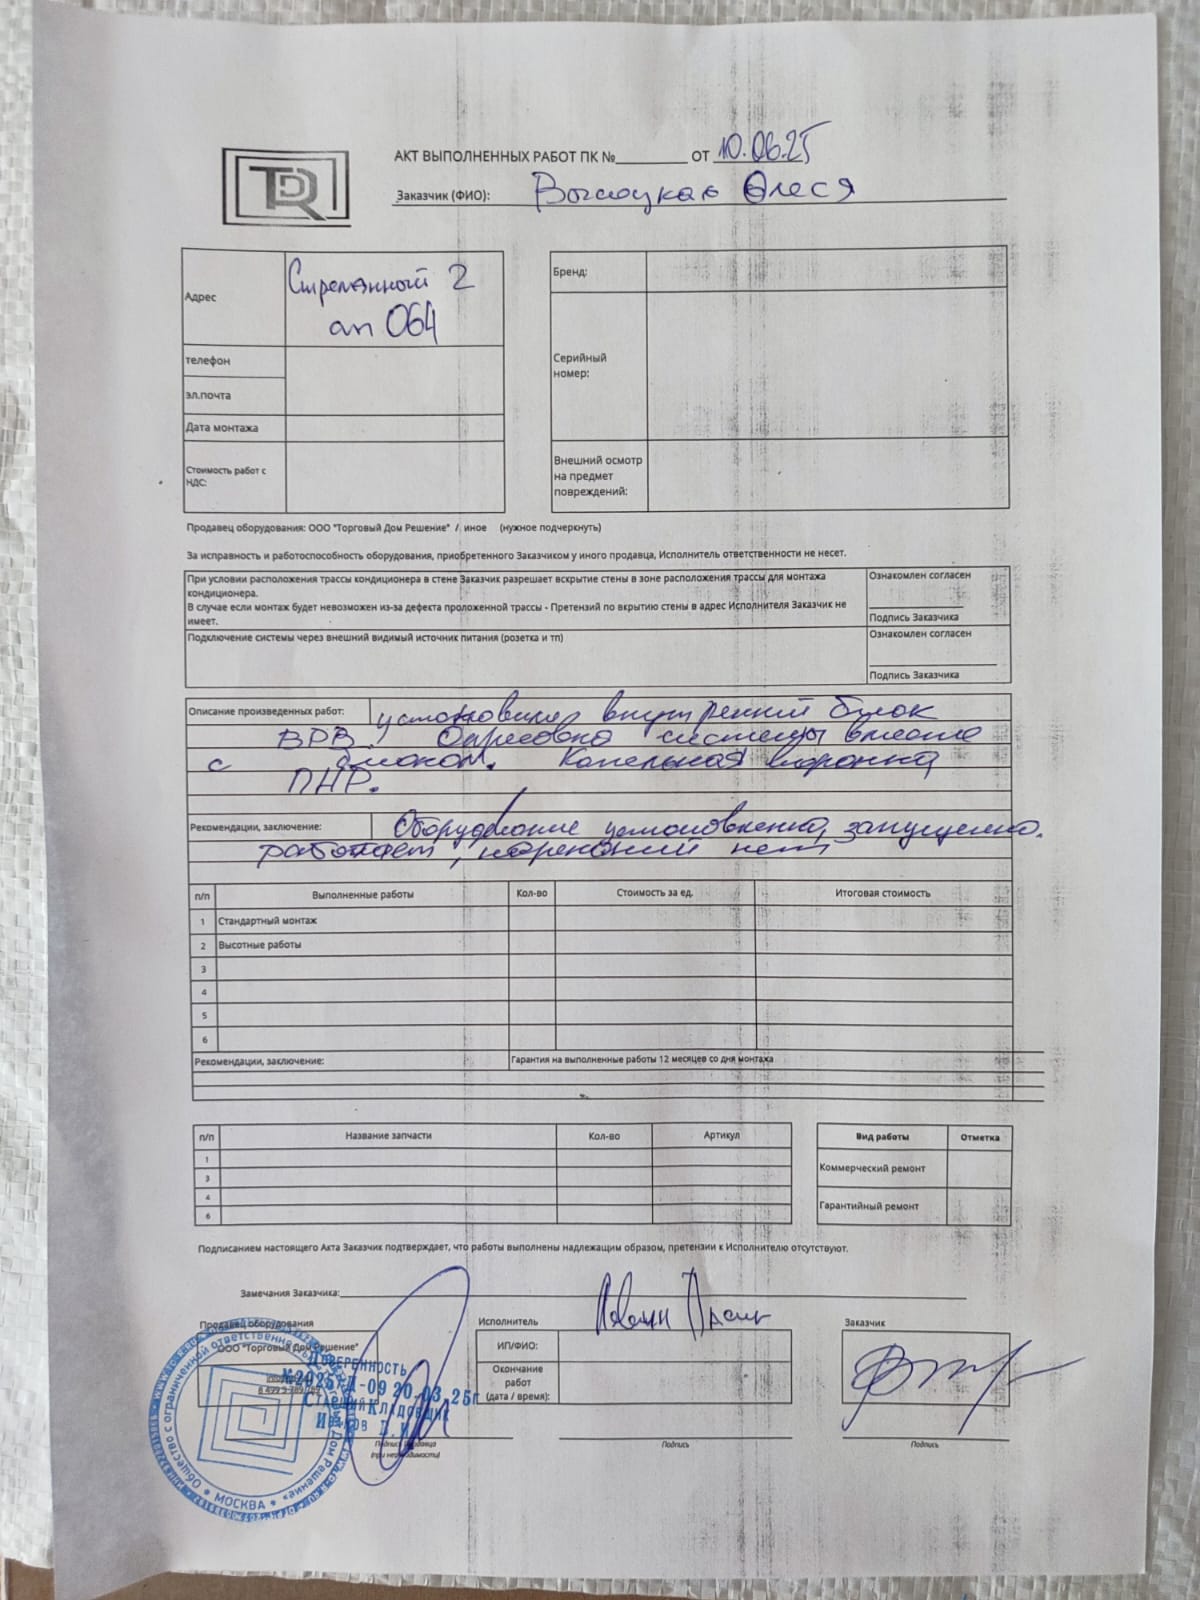 TDR
АКТ ВЫПОЛНЕННЫХ РАБОТ ПК №________ ОТ 10.06.25
Заказчик (ФИО): Высоцкая Олеся
Адрес Стремянный 2
ап 064
телефон
эл.почта
Дата монтажа
Стоимость работ с
НДС:
Бренд:
Серийный
номер:
Внешний осмотр
на предмет
повреждений:
Продавец оборудования: ООО "Торговый Дом Решение" / иное (нужное подчеркнуть)
За исправность и работоспособность оборудования, приобретенного Заказчиком у иного продавца, Исполнитель ответственности не несет.
При условии расположения трассы кондиционера в стене Заказчик разрешает вскрытие стены в зоне расположения трассы для монтажа
кондиционера.
В случае если монтаж будет невозможен из-за дефекта проложенной трассы - Претензий по вкрытию стены в адрес Исполнителя Заказчик не
имеет.
Ознакомлен согласен
Подпись Заказчика
Подключение системы через внешний видимый источник питания (розетка и тп)
Ознакомлен согласен
Подпись Заказчика
Описание произведенных работ: установили внутренний блок
ВРВ. Опресовка системы вместе
с блоком. Капельная воронка
ПНР.
Рекомендации, заключение: Оборудование установленно, запущенно.
работает, нареканий нет
п/п Выполненные работы Кол-во Стоимость за ед. Итоговая стоимость
1 Стандартный монтаж
2 Высотные работы
3
4
5
6
Рекомендации, заключение: Гарантия на выполненные работы 12 месяцев со дня монтажа
п/п Название запчасти Кол-во Артикул
1
3
4
6
Вид работы Отметка
Коммерческий ремонт
Гарантийный ремонт
Подписанием настоящего Акта Заказчик подтверждает, что работы выполнены надлежащим образом, претензии к Исполнителю отсутствуют.
Замечания Заказчика:
Продавец оборудования
ООО "Торговый Дом Решение"
Доверенность
20.03.25г
Старший Кладовщик
Общество с ограниченной ответственностью
Торговый Дом Решение
МОСКВА
Подпись продавца
(при необходимости)
Исполнитель
ИП/ФИО:
Окончание
работ
(дата / время):
Подпись
Заказчик
Подпись